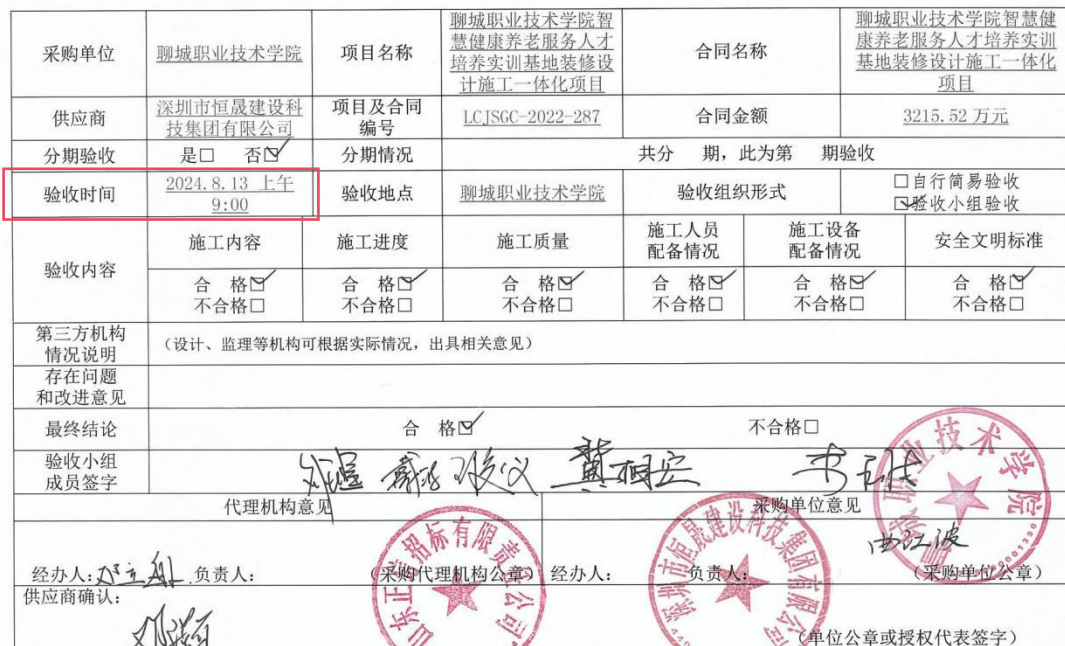 采购单位
聊城职业技术学院
项目名称
聊城职业技术学院智
慧健康养老服务人才
培养实训基地装修设
计施工一体化项目
合同名称
聊城职业技术学院智慧健
康养老服务人才培养实训
基地装修设计施工一体化
项目
供应商
深圳市恒晟建设科
技集团有限公司
项目及合同
编号
LCJSGC-2022-287
合同金额
3215.52 万元
分期验收
是□ 否☑
分期情况
共分 期，此为第 期验收
验收时间
2024.8.13 上午
9:00
验收地点
聊城职业技术学院
验收组织形式
□自行简易验收
☑验收小组验收
验收内容
施工内容
施工进度
施工质量
施工人员
配备情况
施工设备
配备情况
安全文明标准
合 格☑
不合格□
合 格☑
不合格□
合 格☑
不合格□
合 格☑
不合格□
合 格☑
不合格□
合 格☑
不合格□
第三方机构
情况说明
（设计、监理等机构可根据实际情况，出具相关意见）
存在问题
和改进意见
最终结论
合 格☑
不合格□
验收小组
成员签字
代理机构意见
采购单位意见
经办人： 负责人：
（采购代理机构公章）
经办人： 负责人：
（采购单位公章）
供应商确认：
（单位公章或授权代表签字）
职业技术学院
招标有限责任公司
深圳市恒晟建设科技集团有限公司